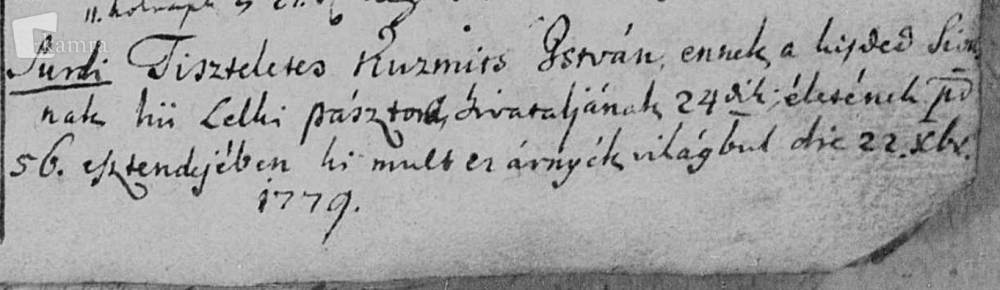 11. holnap
kamra
Surdi Tiszteletes Kuzmits Istvan, ennek a kisded Sion
nak hű Lelki pásztora, hivataljának 24dik; életének pd
56. esztendejében ki mult ez árnyék világbul die 22. Xbr.
1779.